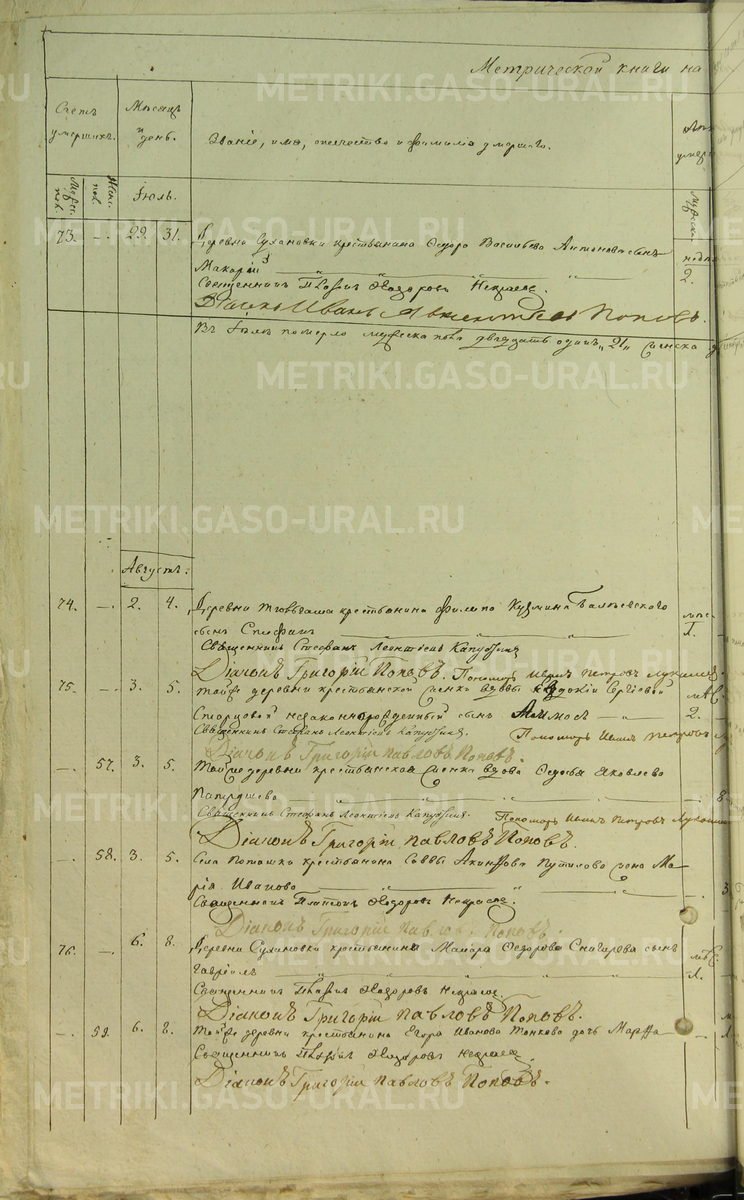 Метрической книги на
Счетъ умершихъ.
Мѣсяцъ и день.
Званіе, имя, отечество и фамилія умершаго.
Мужес. пол.
Женс. пол.
Іюль.
73. — 29. 31. Деревни Сухановки крестьянина Ѳедора Васильева Антонова сынъ
Макарій
2.
Священникъ Ѳеодоровъ Некрасовъ.
Дьячекъ Иванъ Поповъ.
Въ Іюлѣ померло мужеска пола двадцать одинъ „21„ женска
Августъ:
74. — 2. 4. Деревни крестьянина Филипа Кузмина
сынъ
Священникъ Стефанъ Леонтіевъ Капустинъ
Діаконъ Григорій Поповъ. Пономарь Иванъ Петровъ
75. — 3. 5. Тойже деревни крестьянской женки вдовы Евдокіи Сергіевой
незаконнорожденный сынъ — 2. —
Священникъ Стефанъ Леонтіевъ Капустинъ. Пономарь Иванъ Петровъ
Діаконъ Григорій Павловъ Поповъ.
— 57. 3. 5. Тойже деревни крестьянская женка вдова Ѳедосья Яковлева
Священникъ Стефанъ Леонтіевъ Капустинъ. Пономарь Иванъ Петровъ
Діаконъ Григорій Павловъ Поповъ.
— 58. 3. 5. Села Поташки крестьянина Саввы Путилова жена Ма-
рія Иванова
Священникъ Платонъ Ѳеодоровъ Некрасовъ.
Діаконъ Григорій Павловъ Поповъ.
76. — 6. 8. Деревни Сухановки крестьянина Макара Ѳедорова Снигирева сынъ
Гавріилъ
Священникъ Ѳеодоровъ Некрасовъ
Діаконъ Григорій Павловъ Поповъ.
— 59. 6. 8. Тойже деревни крестьянина Егора Иванова Тонкова дочь Марѳа
Священникъ Ѳеодоровъ Некрасовъ.
Діаконъ Григорій Павловъ Поповъ.
METRIKI.GASO-URAL.RU